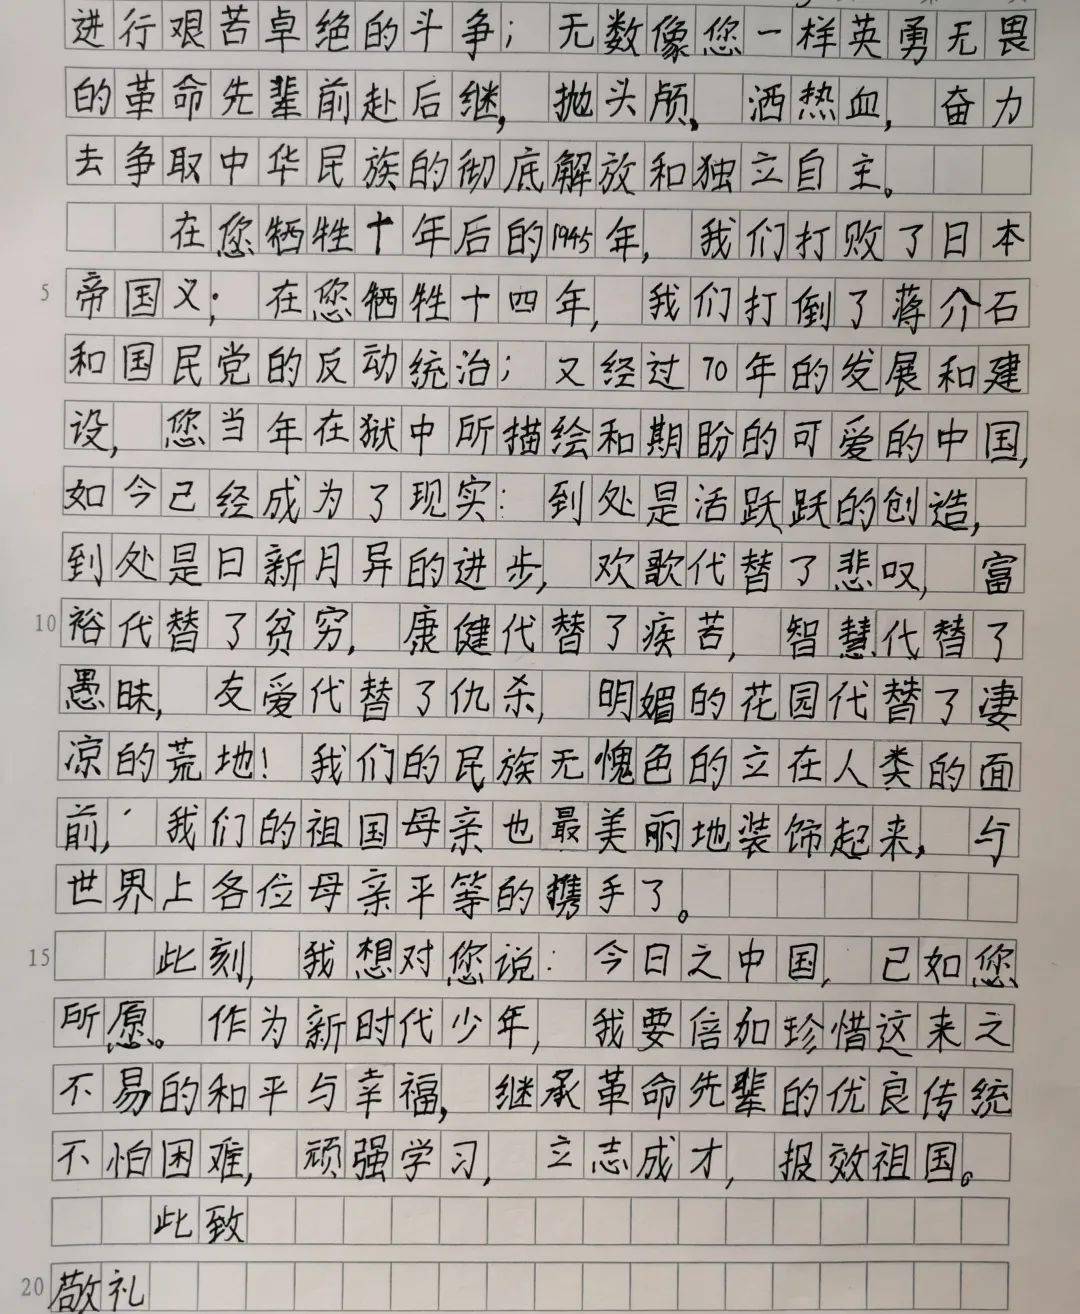 进行艰苦卓绝的斗争；无数像您一样英勇无畏
的革命先辈前赴后继，抛头颅，洒热血，奋力
去争取中华民族的彻底解放和独立自主。
在您牺牲十年后的1945年，我们打败了日本
5 帝国义；在您牺牲十四年，我们打倒了蒋介石
和国民党的反动统治；又经过70年的发展和建
设，您当年在狱中所描绘和期盼的可爱的中国，
如今已经成为了现实：到处是活跃跃的创造，
到处是日新月异的进步，欢歌代替了悲叹，富
10 裕代替了贫穷，康健代替了疾苦，智慧代替了
愚昧，友爱代替了仇杀，明媚的花园代替了凄
凉的荒地！我们的民族无愧色的立在人类的面
前，我们的祖国母亲也最美丽地装饰起来，与
世界上各位母亲平等的携手了。
15 此刻，我想对您说：今日之中国，已如您
所愿。作为新时代少年，我要倍加珍惜这来之
不易的和平与幸福，继承革命先辈的优良传统
不怕困难，顽强学习，立志成才，报效祖国。
此致
20 敬礼